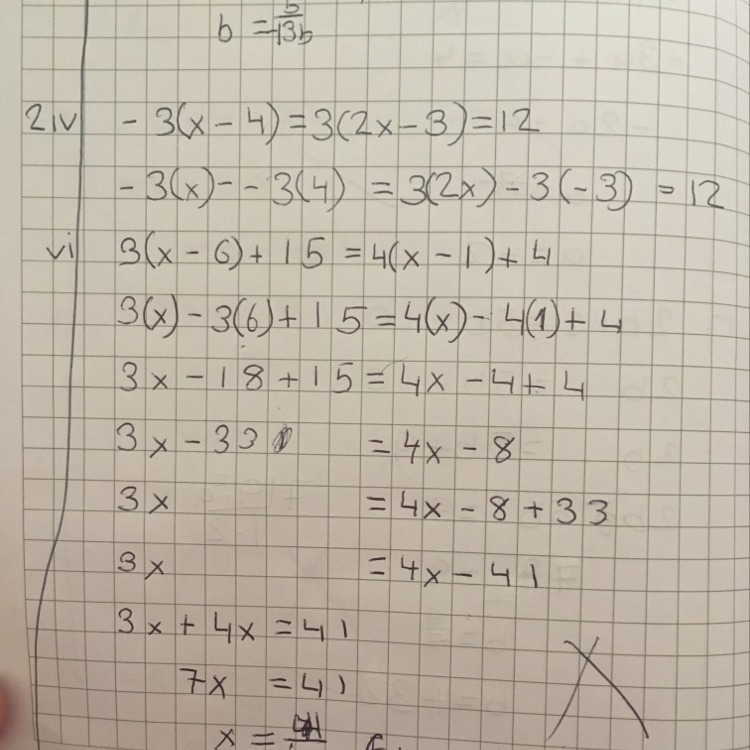 b = 5/-13b
2iv - 3(x - 4) = 3(2x - 3) = 12
- 3(x) - - 3(4) = 3(2x) - 3(-3) = 12
vi 3(x - 6) + 15 = 4(x - 1) + 4
3(x) - 3(6) + 15 = 4(x) - 4(1) + 4
3x - 18 + 15 = 4x - 4 + 4
3x - 33 = 4x - 8
3x = 4x - 8 + 33
3x = 4x - 41
3x + 4x = 41
7x = 41
x =